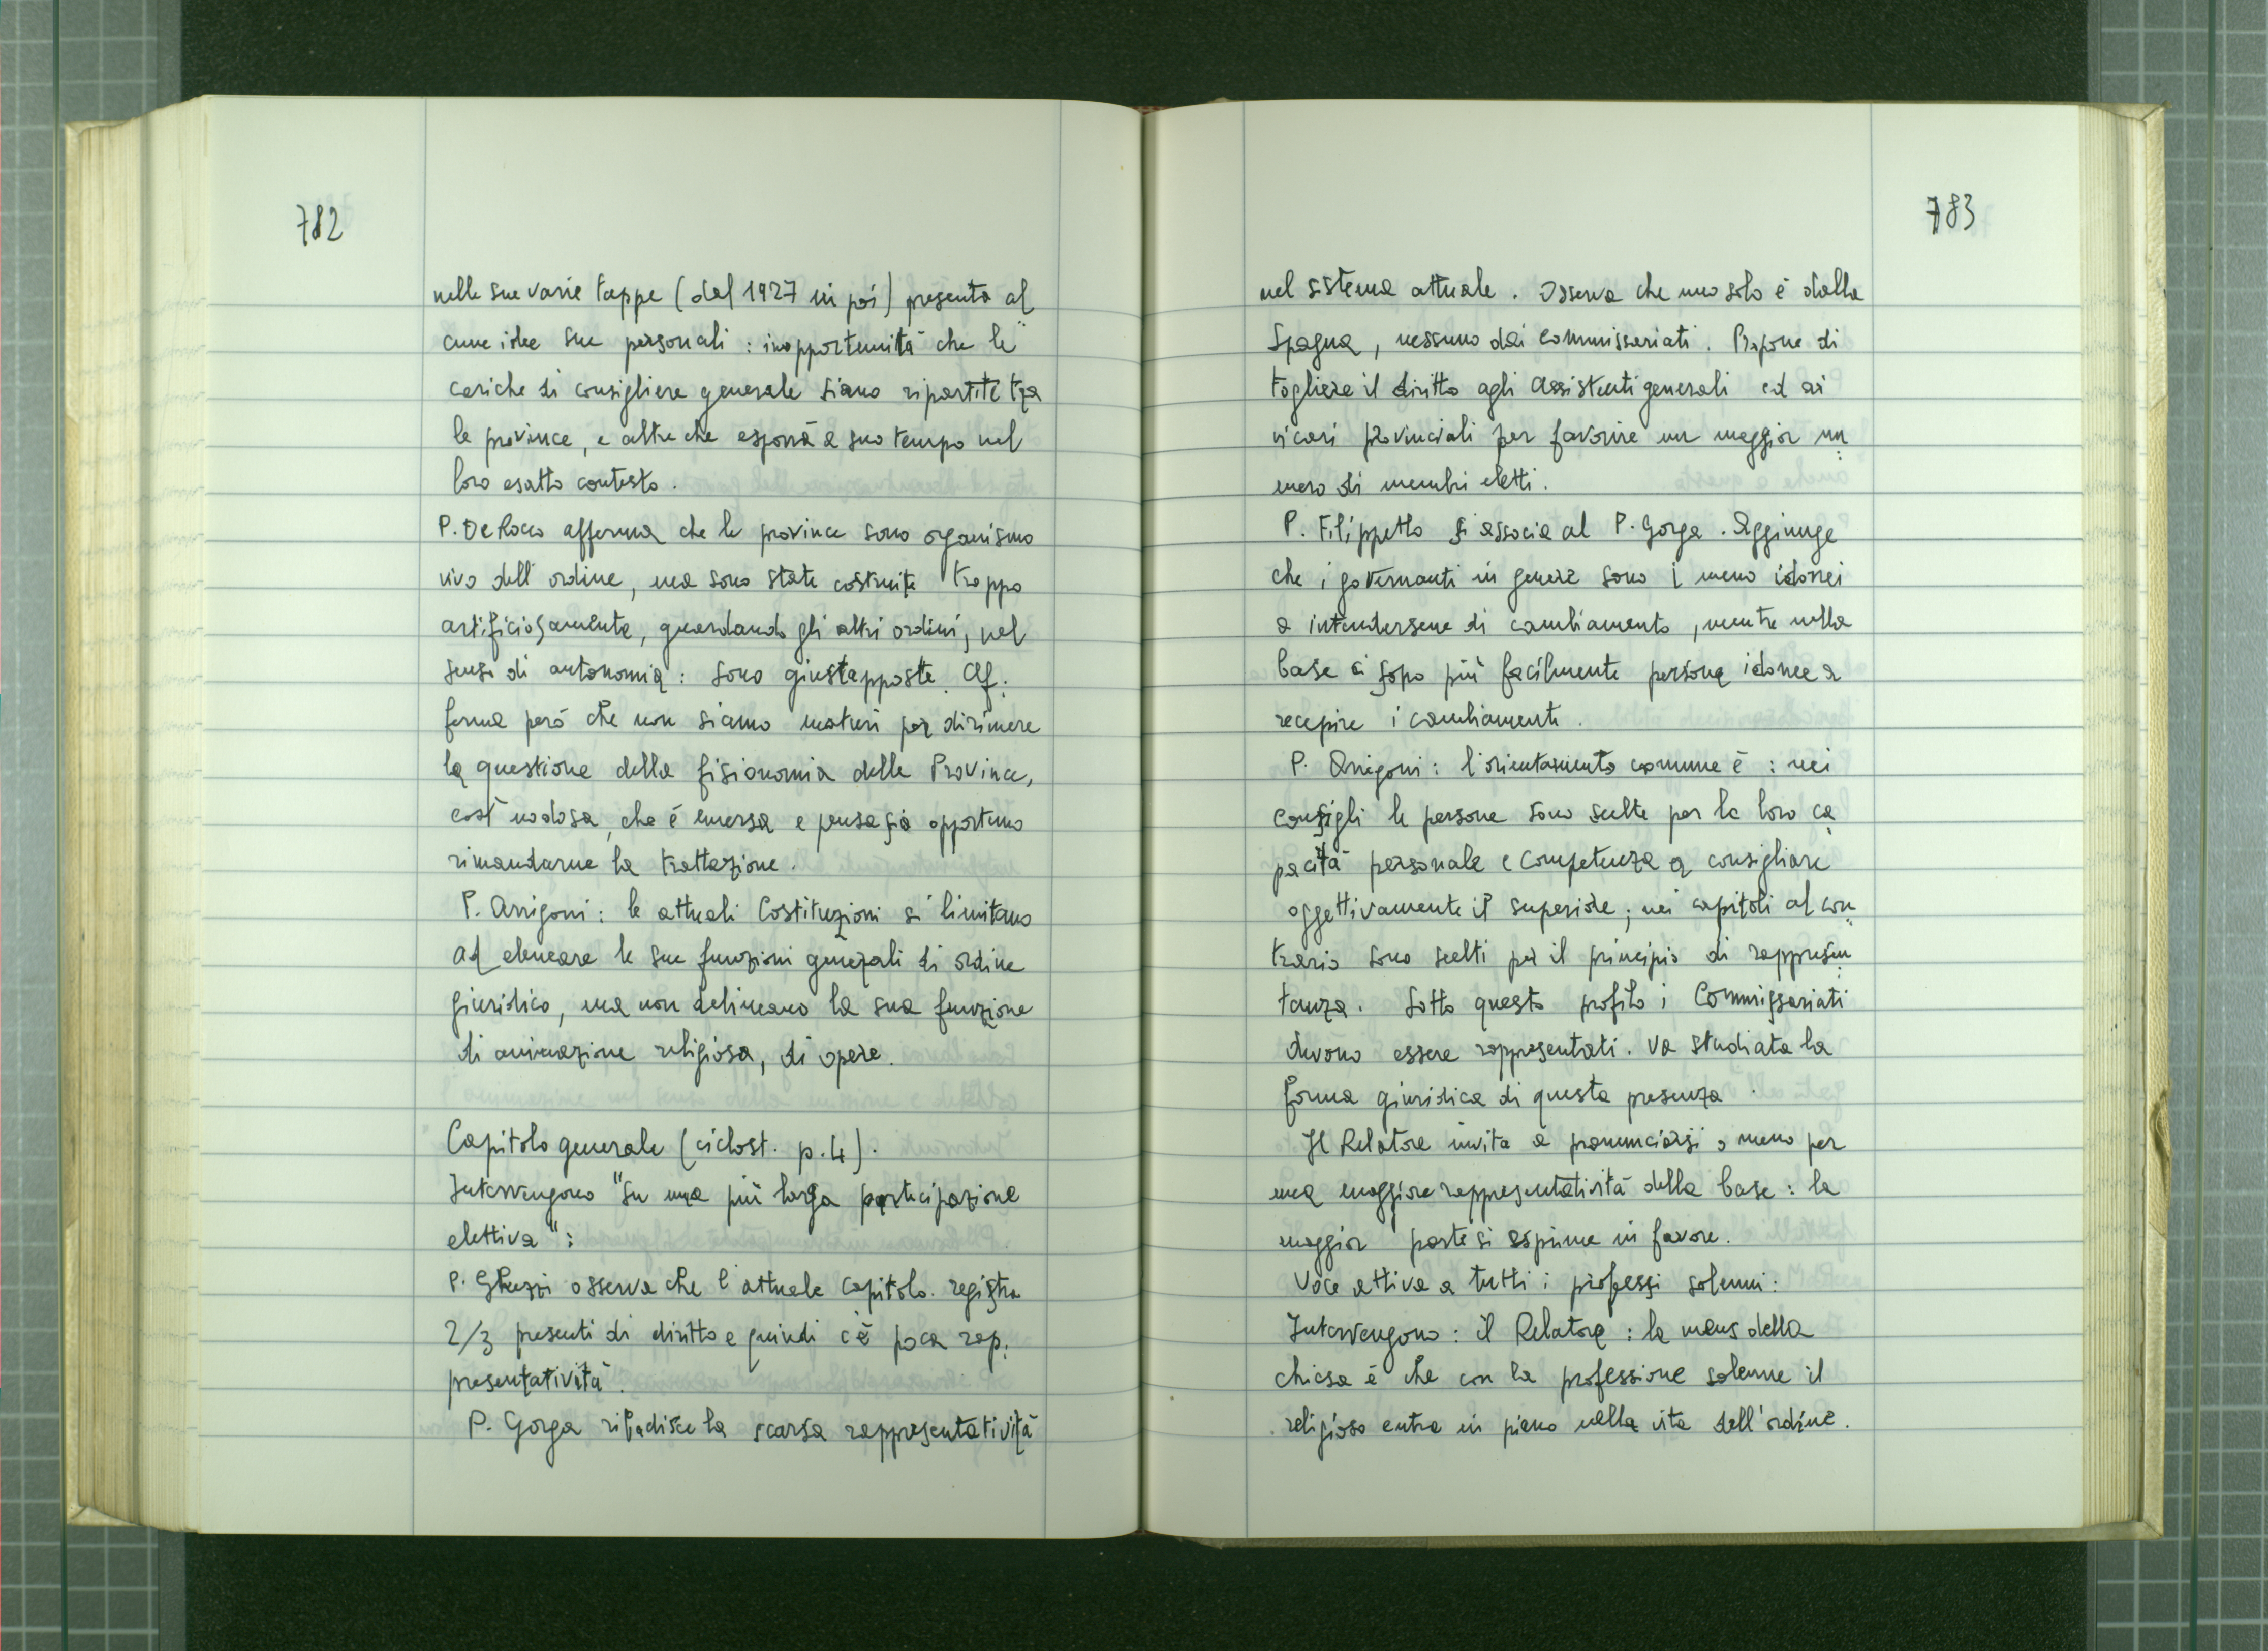 782
nelle sue varie tappe (dal 1927 in poi) presenta al
cune idee sue personali : inopportunità che le
cariche di consigliere generale siano ripartite tra
le province, e altre che esporrà a suo tempo nel
loro esatto contesto.
P. De Rocco afferma che le province sono organismo
vivo dell'ordine, ma sono state costruite troppo
artificiosamente, guardando gli altri ordini, nel
senso di autonomia : sono giustapposte. Af.
ferma però che non siamo maturi per dirimere
la questione della fisionomia delle Province,
così nodosa, che è emersa e pensa sia opportuno
rimandarne la trattazione.
P. Arrigoni : le attuali Costituzioni si limitano
ad elencare le sue funzioni generali di ordine
giuridico, ma non delineano la sua funzione
di animazione religiosa, di opere.
Capitolo generale (ciclost. p.4).
Intervengono "Su una più larga partecipazione
elettiva" :
P. Ghezzi osserva che l'attuale capitolo registra
2/3 presenti di diritto e quindi c'è poca rap.
presentatività.
P. Gorga ribadisce la scarsa rappresentatività
783
nel sistema attuale. Osserva che uno solo è dalla
Spagna, nessuno dai commissariati. Propone di
togliere il diritto agli Assistenti generali ed ai
vicari provinciali per favorire un maggior nu
mero di membri eletti.
P. Filippetto si associa al P. Gorga. Aggiunge
che i governanti in genere sono i meno idonei
a intendersene di cambiamento, mentre nella
base ci sono più facilmente persone idonee a
recepire i cambiamenti.
P. Arrigoni : l'orientamento comune è : nei
consigli le persone sono scelte per la loro ca
pacità personale e competenza a consigliare
oggettivamente il superiore ; nei capitoli al con
trario sono scelti per il principio di rappresen
tanza. Sotto questo profilo i Commissariati
devono essere rappresentati. Va studiata la
forma giuridica di questa presenza.
Il Relatore invita a pronunciarsi o meno per
una maggiore rappresentatività della base : la
maggior parte si esprime in favore.
Voce attiva a tutti i professi solenni :
Intervengono : il Relatore : la mens della
chiesa è che con la professione solenne il
religioso entra in pieno nella vita dell'ordine.